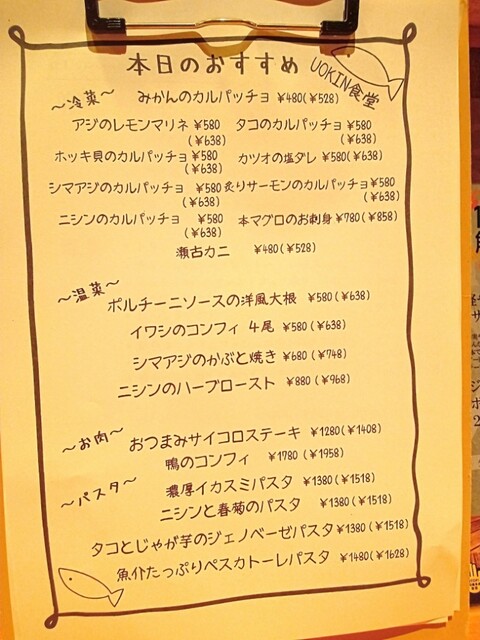 本日のおすすめ UOKIN食堂
〜冷菜〜 みかんのカルパッチョ ¥480(¥528)
アジのレモンマリネ ¥580 (¥638) タコのカルパッチョ ¥580 (¥638)
ホッキ貝のカルパッチョ ¥580 (¥638) カツオの塩ダレ ¥580(¥638)
シマアジのカルパッチョ ¥580 (¥638) 炙りサーモンのカルパッチョ ¥580 (¥638)
ニシンのカルパッチョ ¥580 (¥638) 本マグロのお刺身 ¥780(¥858)
瀬古カニ ¥480(¥528)
〜温菜〜
ポルチーニソースの洋風大根 ¥580(¥638)
イワシのコンフィ 4尾 ¥580(¥638)
シマアジのかぶと焼き ¥680(¥748)
ニシンのハーブロースト ¥880(¥968)
〜お肉〜 おつまみサイコロステーキ ¥1280(¥1408)
鴨のコンフィ ¥1780(¥1958)
〜パスタ〜 濃厚イカスミパスタ ¥1380(¥1518)
ニシンと春菊のパスタ ¥1380(¥1518)
タコとじゃが芋のジェノベーゼパスタ ¥1380(¥1518)
魚介たっぷりペスカトーレパスタ ¥1480(¥1628)